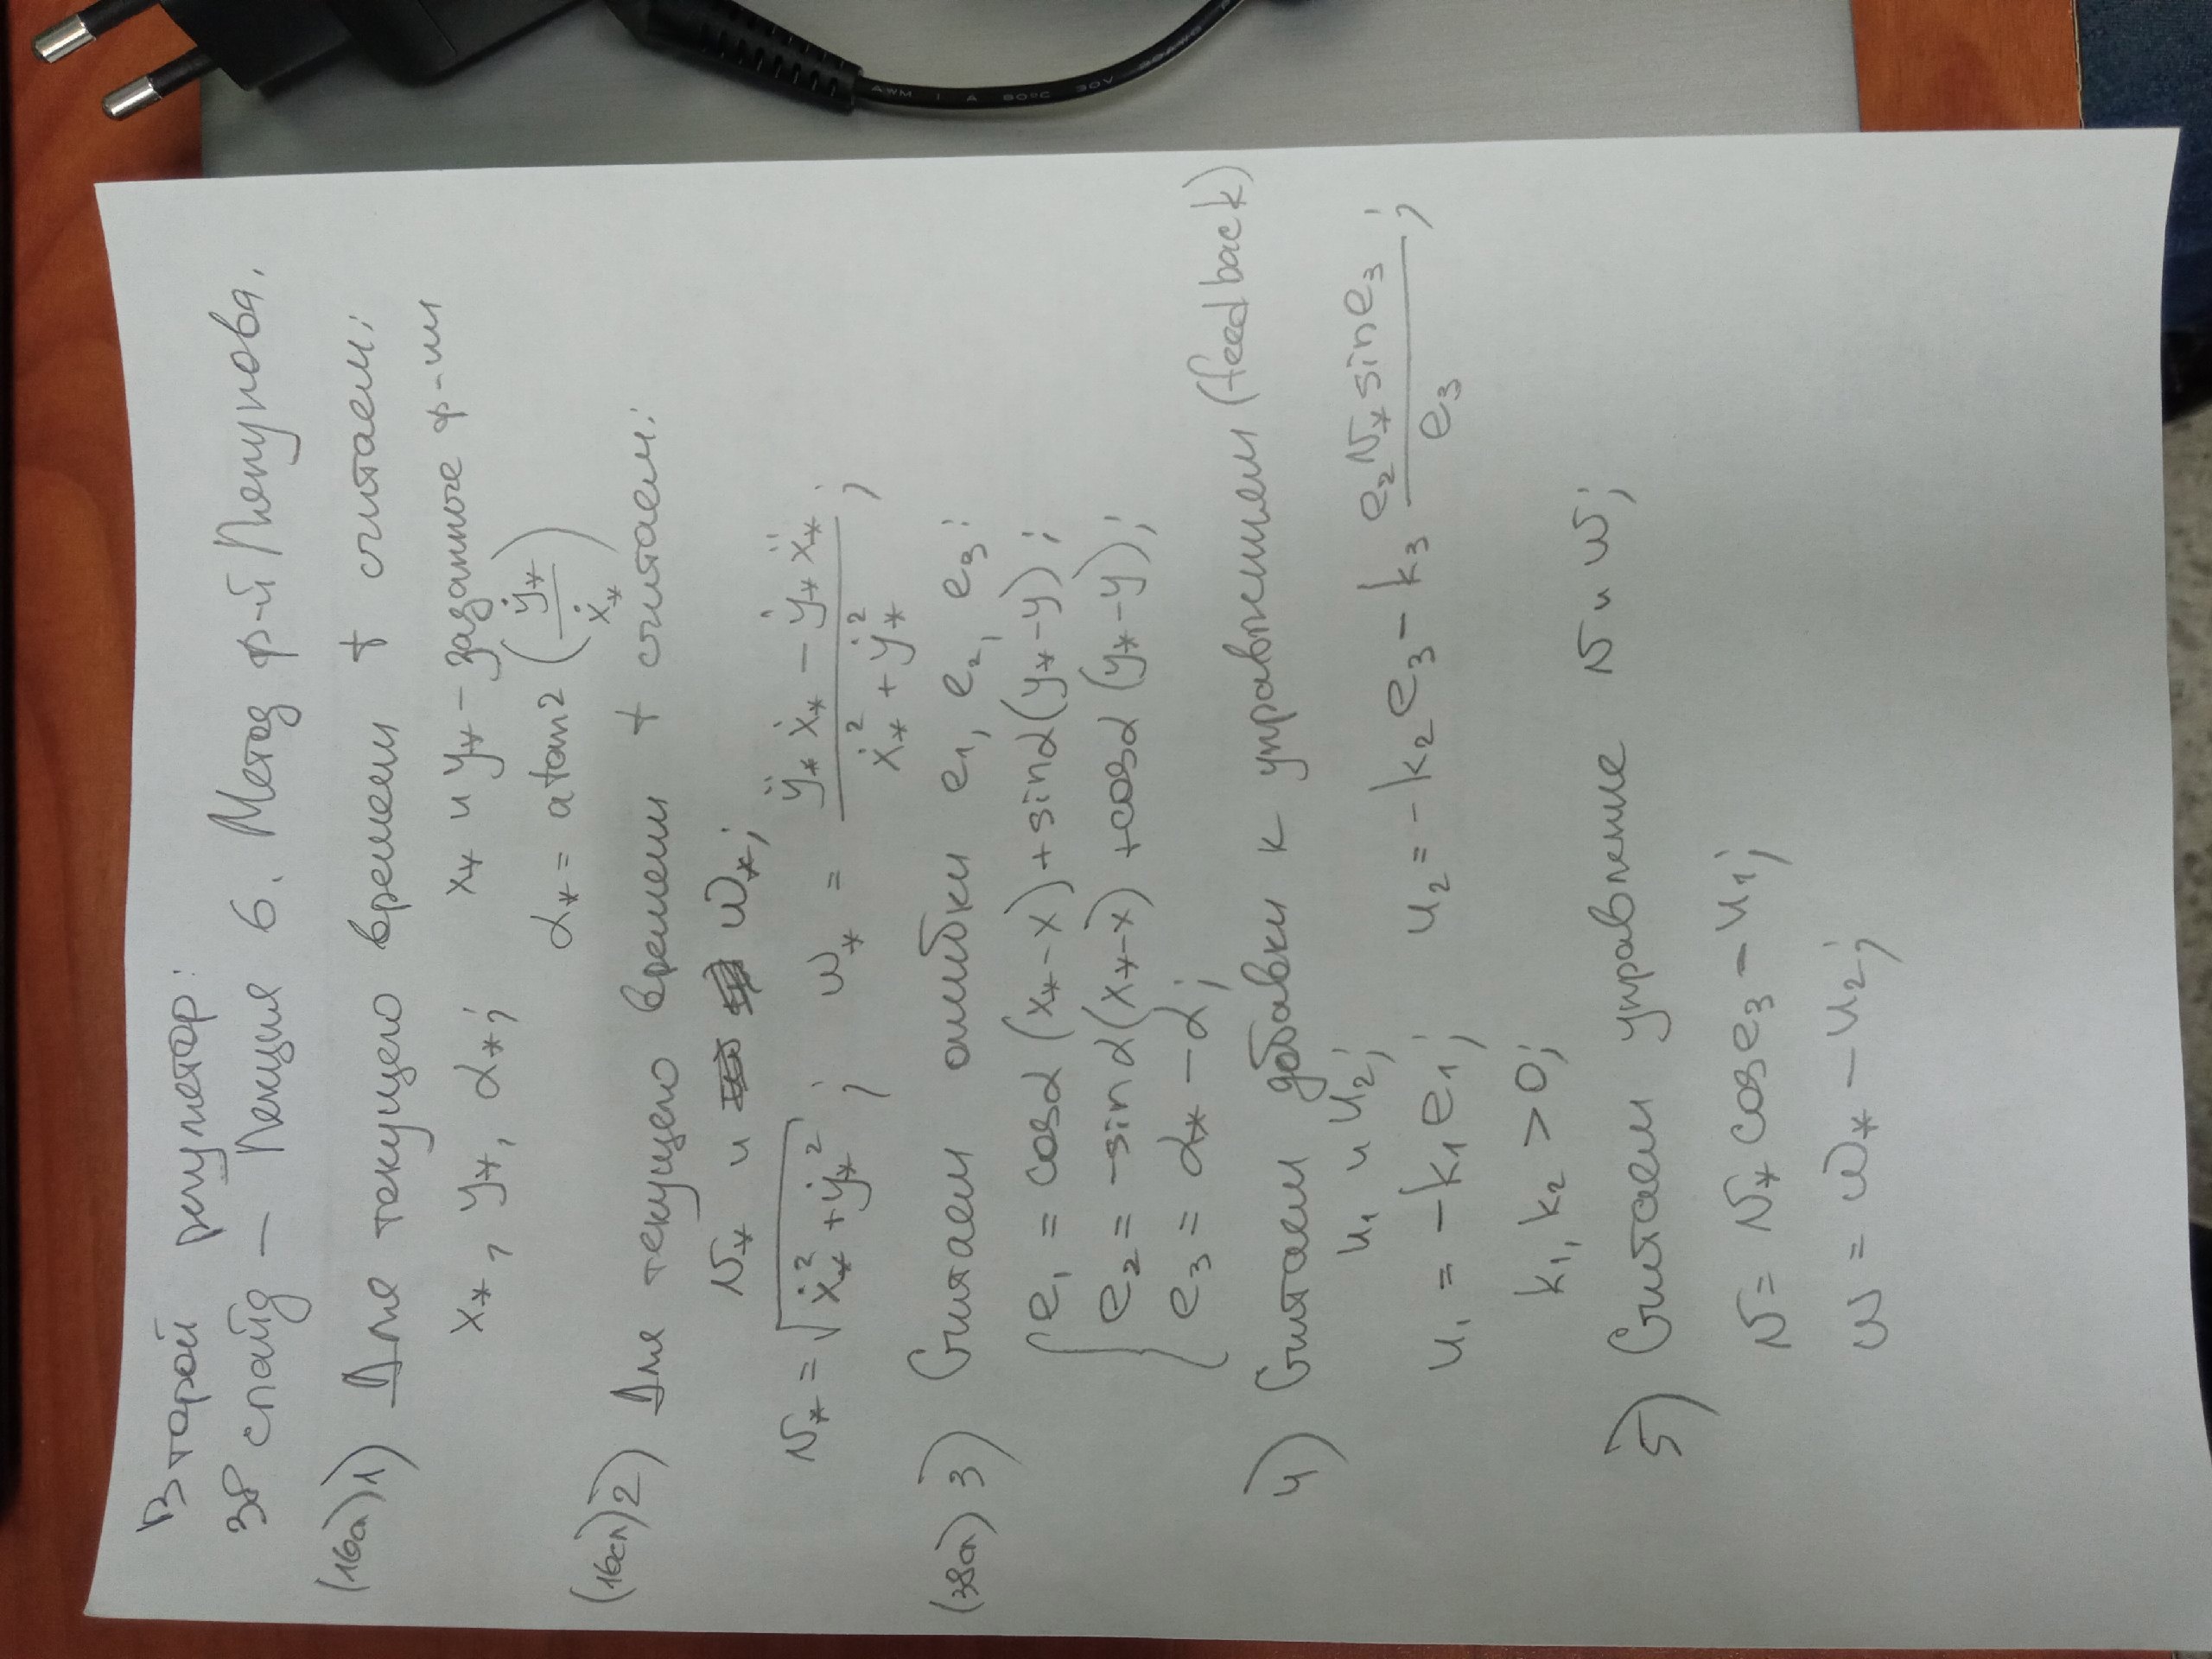 Второй регулятор:
38 слайд – Лекция 6. Метод ф-й Ляпунова.
(16сл) 1) Для текущего времени t считаем:
x*, y*, α*; x* и y* – заданные ф-ии
α* = atan2 (ẏ*/ẋ*)
(16сл) 2) Для текущего времени t считаем:
v* и w*;
v* = √(ẋ*² + ẏ*²); w* = (ÿ* ẋ* – ẏ* ẍ*)/(ẋ*² + ẏ*²);
(38сл) 3) Считаем ошибки e₁, e₂, e₃:
e₁ = cosα (x* – x) + sinα (y* – y);
e₂ = –sinα (x* – x) + cosα (y* – y);
e₃ = α* – α;
4) Считаем добавки к управлениям (feedback)
u₁ и u₂;
u₁ = –k₁e₁; u₂ = –k₂e₃ – k₃ (e₂ v* sin e₃)/e₃;
k₁, k₂ > 0;
5) Считаем управление v и w;
v = v* cos e₃ – u₁;
w = w* – u₂;